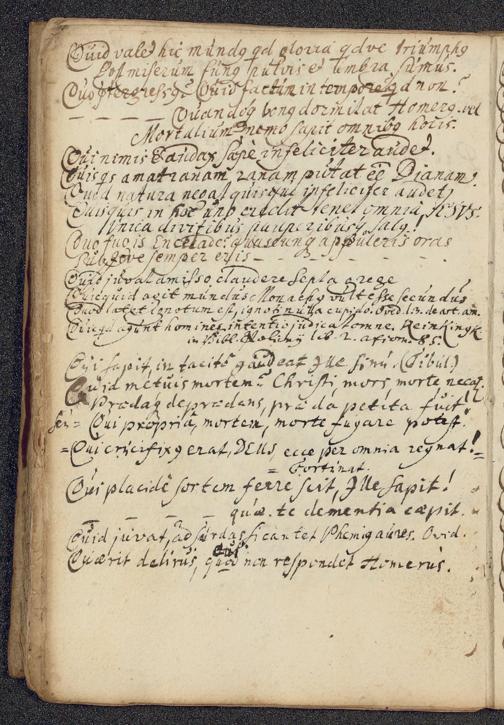 Quid valet hic mundq qd gloria qdve triumphq
Post miserum funq pulvis et umbra sumus.
Quo ptergressq? Quid factum in tempore qd non?
_ _ _ _ _ Quandoq bonq dormitat Homerq. vel
Mortalium nemo sapit omnibq horis.
Qui nimis Eaudax sæpe infeliciter audet.
Quisqs amat ranam ranam putat eē Dianam.
Quod natura negat quisque infelicifer audet,
Quisquis in hoc uno credit tenet omnia, IESVS.
Vnica divitibus pauperibusq Salq.
Quo fugis Encelade? quascunq appuleris oras
Sub Jove semper eris _ _ _ _
Quid juvat amisso claudere septa grege
Quicquid agit mundus Monachq vult esse secundus
Quod latet ignotum est, ignoti nulla cupido. Ovid. l. 3. de art. am.
Quicqd agunt homines intentio judicat omne. Reinkingk
in Bibl. Policey lib. 2. axiom. 85.
Qui sapit, in tacito gaudeat Ille sinu. (Tibul.)
Quid metuis mortem? Christi mors morte necat
Prædaq deprædens, præda petita fuit!
seu = Qui propria, mortem, morte fugare potest.
= Qui crucifixq erat, DEUs, ecce per omnia regnat!
= Fortunat.
Qui placide sortem ferre scit, Ille sapit!
_ _ _ _ quæ te dementia cæpit.
Quid juvat, ad surdas si cantet Phemiq aures. Ovid.
Quærit delirus, quod non respondet Homerus.